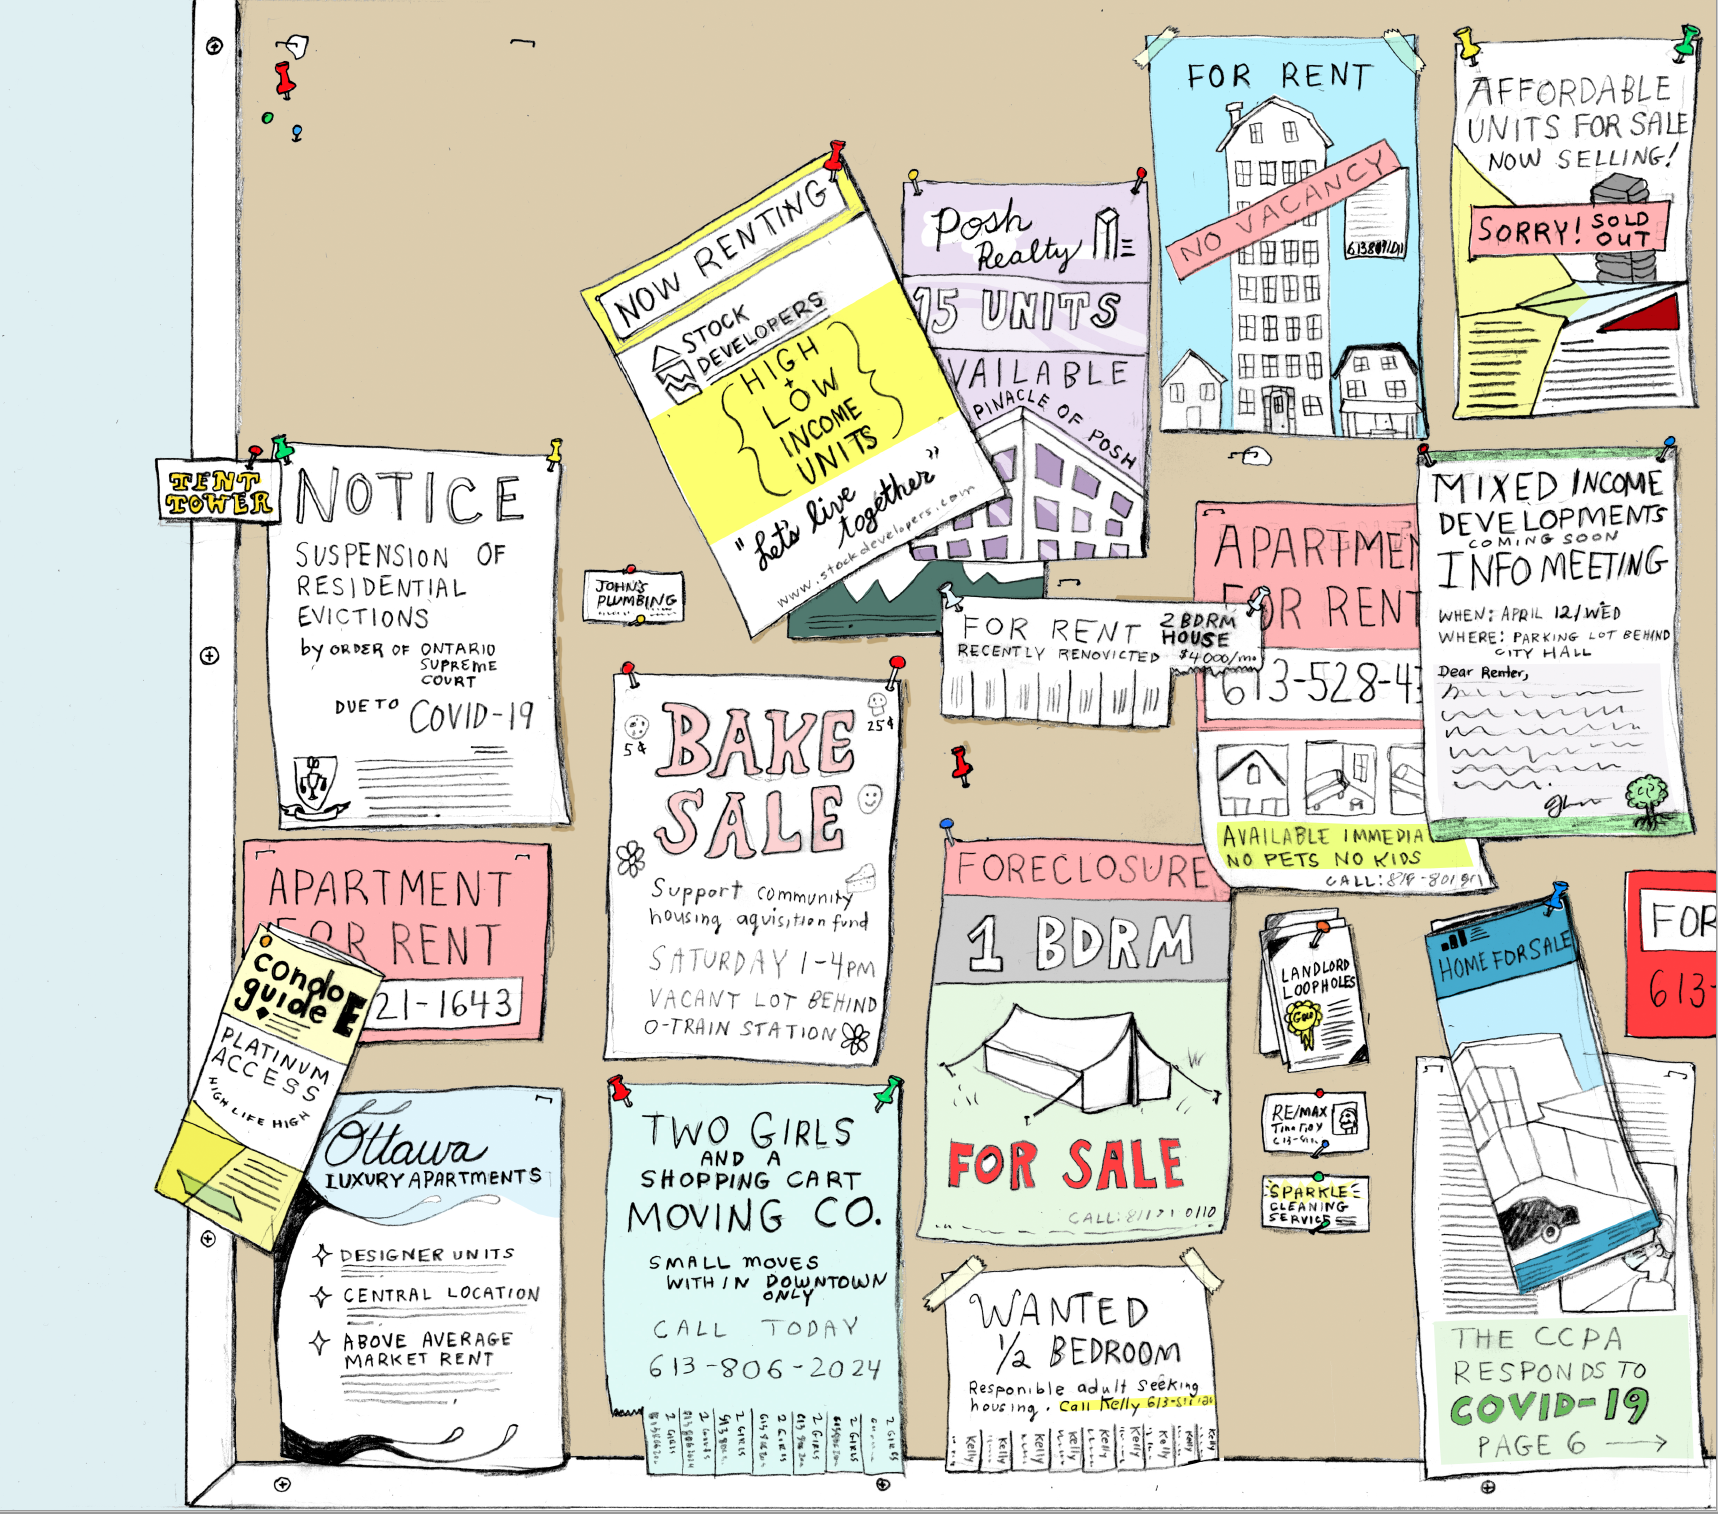 FOR RENT
NO VACANCY
AFFORDABLE
UNITS FOR SALE
NOW SELLING!
SORRY! SOLD
OUT
NOW RENTING
STOCK
DEVELOPERS
HIGH
+
LOW
INCOME
UNITS
"Let's live
together"
www.stockdevelopers.com
Posh
Realty
15 UNITS
VAILABLE
PINACLE OF POSH
TENT
TOWER
NOTICE
SUSPENSION OF
RESIDENTIAL
EVICTIONS
by ORDER OF ONTARIO
SUPREME
COURT
DUE TO COVID-19
JOHN'S
PLUMBING
FOR RENT
RECENTLY RENOVICTED
2 BDRM
HOUSE
$4000/mo
APARTMEN
FOR RENT
613-528-4
AVAILABLE IMMEDIA
NO PETS NO KIDS
MIXED INCOME
DEVELOPMENTS
COMING SOON
INFO MEETING
WHEN: APRIL 12/WED
WHERE: PARKING LOT BEHIND
CITY HALL
Dear Renter,
BAKE
SALE
5¢
25¢
Support community
housing aquisition fund
SATURDAY 1-4PM
VACANT LOT BEHIND
O-TRAIN STATION
APARTMENT
FOR RENT
21-1643
condo
guide
PLATINUM
ACCESS
HIGH LIFE HIGH
Ottawa
LUXURY APARTMENTS
DESIGNER UNITS
CENTRAL LOCATION
ABOVE AVERAGE
MARKET RENT
TWO GIRLS
AND A
SHOPPING CART
MOVING CO.
SMALL MOVES
WITHIN DOWNTOWN
ONLY
CALL TODAY
613-806-2024
2 GIRLS
2 GIRLS
2 GIRLS
2 GIRLS
2 GIRLS
2 GIRLS
FORECLOSURE
1 BDRM
FOR SALE
CALL:
WANTED
1/2 BEDROOM
Responsible adult seeking
housing. Call Kelly 613-
Kelly
Kelly
Kelly
Kelly
Kelly
Kelly
Kelly
Kelly
Kelly
LANDLORD
LOOPHOLES
GOLD
RE/MAX
SPARKLE
CLEANING
SERVICE
HOME FOR SALE
FOR
613-
THE CCPA
RESPONDS TO
COVID-19
PAGE 6